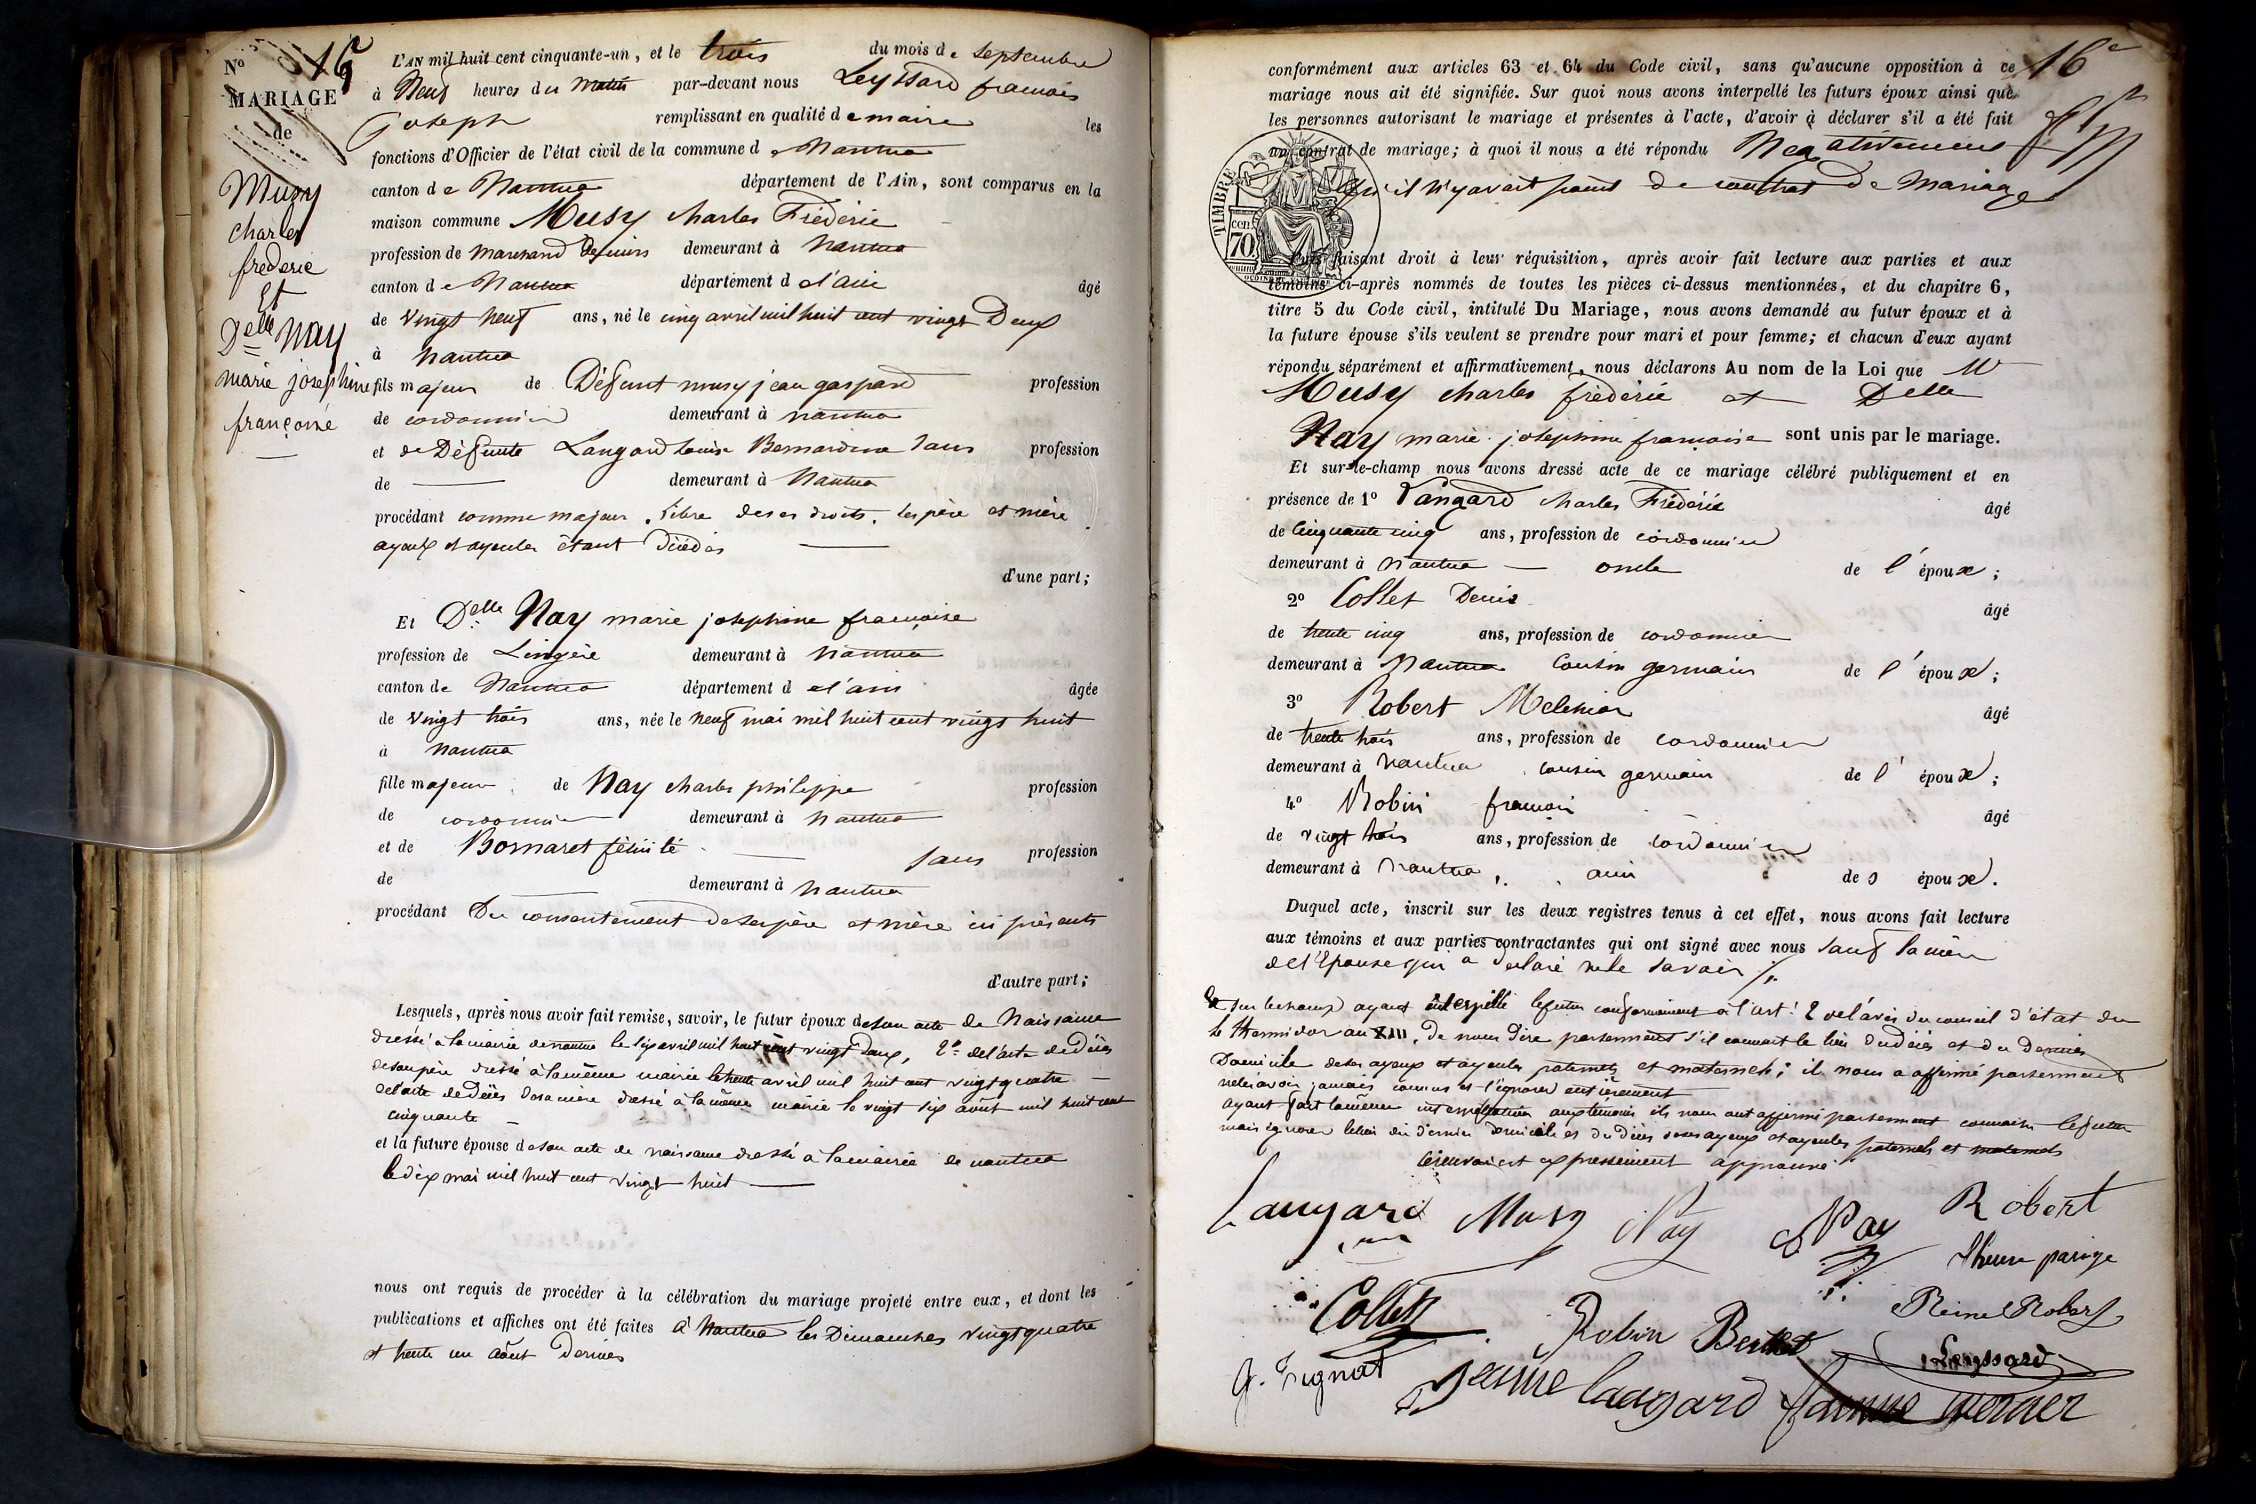 No 16
MARIAGE
de
Musy
charles
frederic
Et
Delle Nay
marie joséphine
françoise
L'AN mil huit cent cinquante-un, et le trois du mois de septembre
à Neuf heures du matin par-devant nous Leyssard françois
joseph remplissant en qualité de maire les
fonctions d'Officier de l'état civil de la commune de Nantua
canton de Nantua département de l'Ain, sont comparus en la
maison commune Musy charles Frédéric
profession de Marchand de cuirs demeurant à Nantua
canton de Nantua département de l'ain âgé
de vingt neuf ans, né le cinq avril mil huit cent vingt Deux
à Nantua
fils majeur de Défunt musy jean gaspard profession
de cordonnier demeurant à nantua
et de Défunte Langard louise Bernardine sans profession
de demeurant à Nantua
procédant comme majeur, libre de ses droits, les père et mère
ayeux et ayeules étant Décédés
d'une part;
Et Delle Nay marie joséphine françoise
profession de Lingère demeurant à Nantua
canton de Nantua département de l'ain âgée
de vingt trois ans, née le neuf mai mil huit cent vingt huit
à Nantua
fille majeure de Nay charles philippe profession
de cordonnier demeurant à nantua
et de Bornaret félicité sans profession
de demeurant à nantua
procédant Du consentement de ses père et mère ici présents
d'autre part;
Lesquels, après nous avoir fait remise, savoir, le futur époux de son acte de Naissance
dressé à la mairie de nantua le six avril mil huit cent vingt deux, 2° de l'acte de Décès
de son père dressé à la même mairie le trente avril mil huit cent vingt quatre
de l'acte de Décès de sa mère dressé à la même mairie le vingt six août mil huit cent
cinquante
et la future épouse de son acte de naissance dressé à la mairie de nantua
le dix mai mil huit cent vingt huit
nous ont requis de procéder à la célébration du mariage projeté entre eux, et dont les
publications et affiches ont été faites à Nantua les Dimanches vingt quatre
et trente un août Dernier
16e
conformément aux articles 63 et 64 du Code civil, sans qu'aucune opposition à ce
mariage nous ait été signifiée. Sur quoi nous avons interpellé les futurs époux ainsi que
les personnes autorisant le mariage et présentes à l'acte, d'avoir à déclarer s'il a été fait
un contrat de mariage; à quoi il nous a été répondu Negativement
qu'il n'y avait point de contrat de Mariage
TIMBRE
cen
70
Puis faisant droit à leur réquisition, après avoir fait lecture aux parties et aux
témoins ci-après nommés de toutes les pièces ci-dessus mentionnées, et du chapitre 6,
titre 5 du Code civil, intitulé Du Mariage, nous avons demandé au futur époux et à
la future épouse s'ils veulent se prendre pour mari et pour femme; et chacun d'eux ayant
répondu séparément et affirmativement, nous déclarons Au nom de la Loi que Mr
Musy charles frédéric et Delle
Nay marie joséphine françoise sont unis par le mariage.
Et sur-le-champ nous avons dressé acte de ce mariage célébré publiquement et en
présence de 1° Langard charles Frédéric âgé
de Cinquante cinq ans, profession de cordonnier
demeurant à Nantua oncle de l'époux;
2° Collet Denis âgé
de trente cinq ans, profession de cordonnier
demeurant à Nantua Cousin germain de l'époux;
3° Robert Melchior âgé
de trente trois ans, profession de cordonnier
demeurant à nantua, cousin germain de l'époux;
4° Robin françois âgé
de vingt trois ans, profession de cordonnier
demeurant à nantua, ami des époux.
Duquel acte, inscrit sur les deux registres tenus à cet effet, nous avons fait lecture
aux témoins et aux parties contractantes qui ont signé avec nous sauf la mère
de l'Epouse qui a déclaré ne le savoir
Et sur le champ ayant interpellé le futur conformément à l'art. 2 de l'avis du conseil d'état du
4 thermidor an XIII, de nous dire par serment s'il connait le lieu du décès et du dernier
Domicile de ses ayeux et ayeules paternels et maternels; il nous a affirmé par serment
ne les avoir jamais connus et l'ignorer entièrement
ayant fait la même interpellation aux témoins ils nous ont affirmé par serment connaitre le futur
mais ignorer le lieu du dernier domicile et du décès de ses ayeux et ayeules paternels et maternels
le renvoi est expressément approuvé
Langard Musy Nay Nay Robert
Collet Robin Berthet Reine Robert
Leyssard